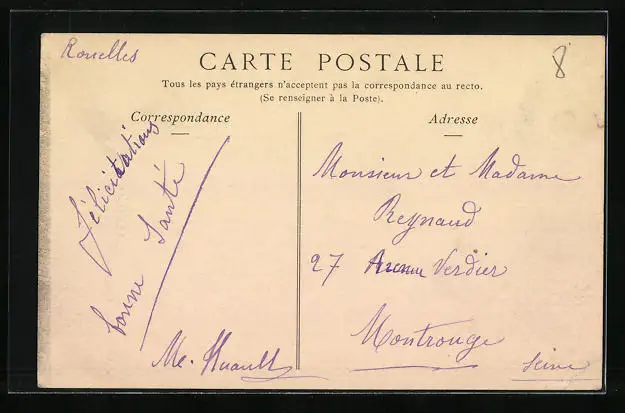 Rouelles
8
CARTE POSTALE
Tous les pays étrangers n'acceptent pas la correspondance au recto.
(Se renseigner à la Poste).
Correspondance
Félicitations
bonne Santé
Me. Huault
Adresse
Monsieur et Madame
Reynaud
27 Avenue Verdier
Montrouge
Seine